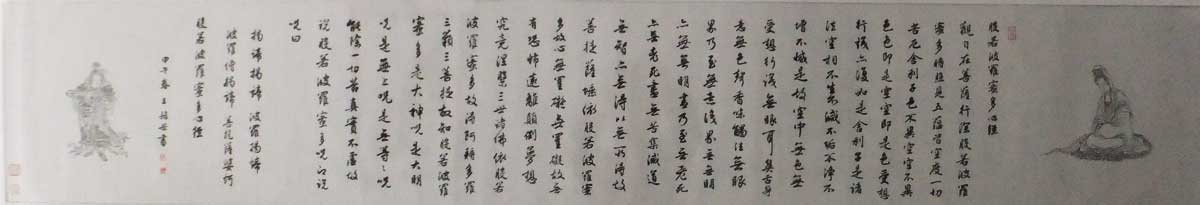 般若波羅蜜多心經
觀自在菩薩行深般若波羅
蜜多時照見五蘊皆空度一切
苦厄舍利子色不異空空不異
色色即是空空即是色受想
行識亦復如是舍利子是諸
法空相不生不滅不垢不淨不
增不減是故空中無色無
受想行識無眼耳鼻舌身
意無色聲香味觸法無眼
界乃至無意識界無無明
亦無無明盡乃至無老死
亦無老死盡無苦集滅道
無智亦無得以無所得故
菩提薩埵依般若波羅蜜
多故心無罣礙無罣礙故無
有恐怖遠離顛倒夢想
究竟涅槃三世諸佛依般若
波羅蜜多故得阿耨多羅
三藐三菩提故知般若波羅
蜜多是大神咒是大明
咒是無上咒是無等等咒
能除一切苦真實不虛故
說般若波羅蜜多咒即說
咒曰
揭諦揭諦 波羅揭諦
波羅僧揭諦 菩提薩婆訶
般若波羅蜜多心經
甲午春王書